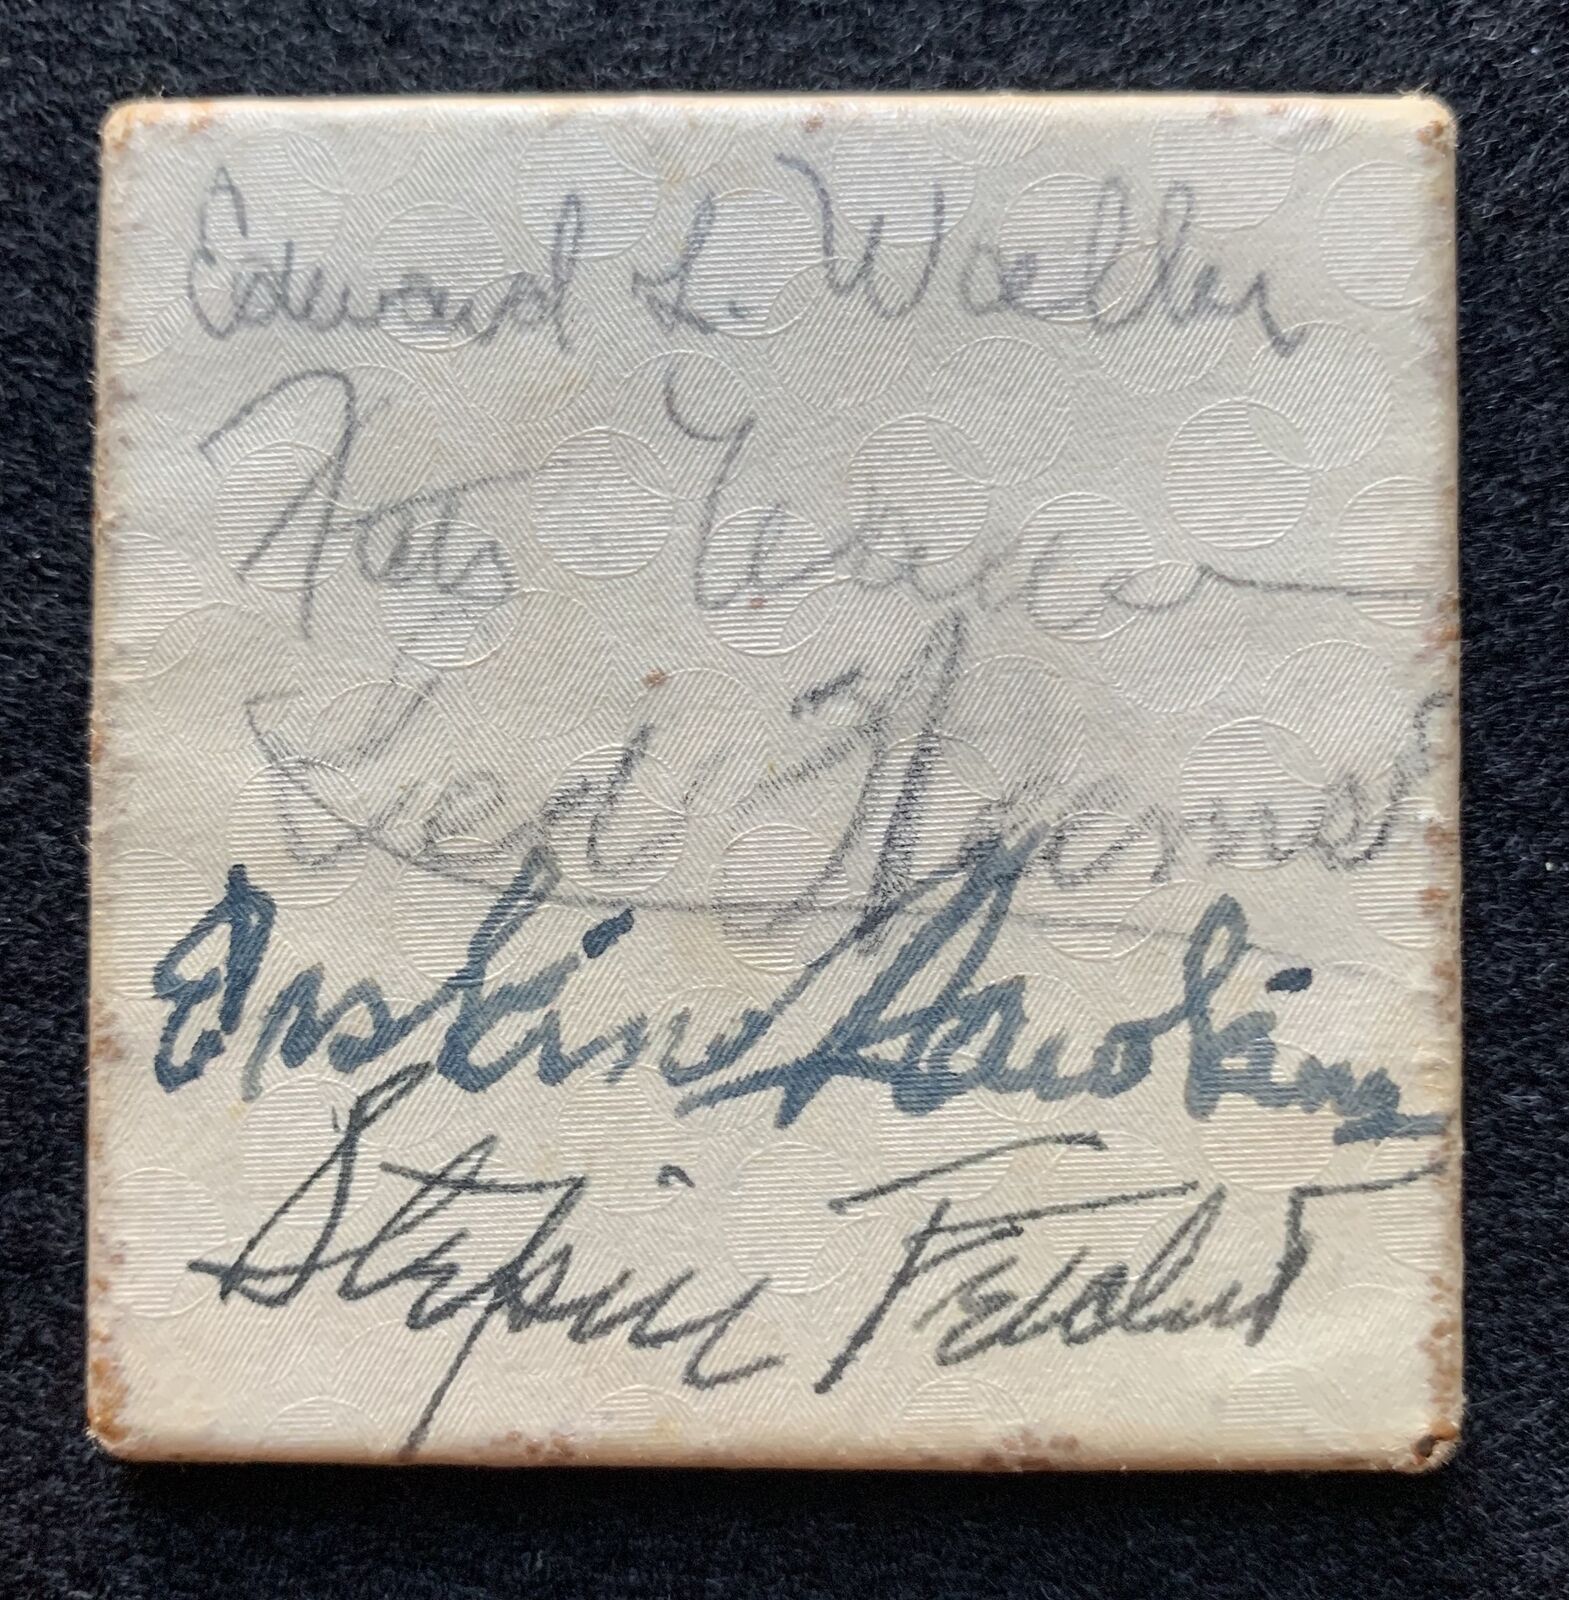 Edward L. Waller
Fats Waller
Ted
Erskine Hawkins
Stepin Fetchit